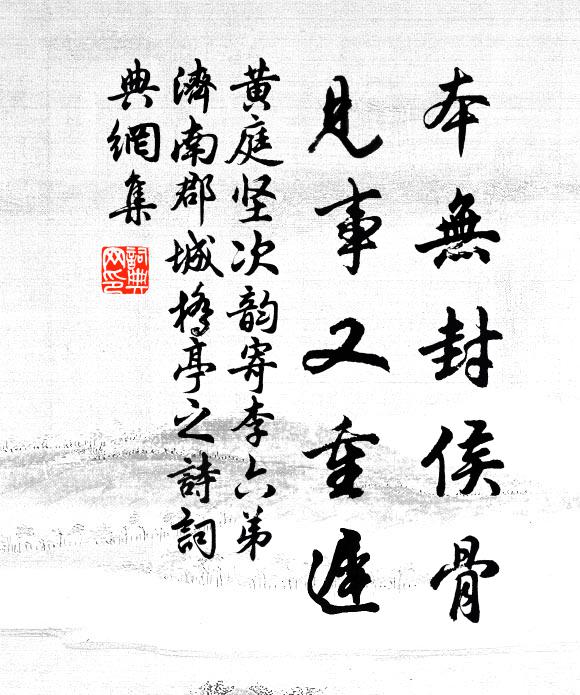 本無封侯骨
見事又重遲
黄庭坚次韵寄李六弟
濟南郡城橋亭之詩詞
典網集
詞典
网印